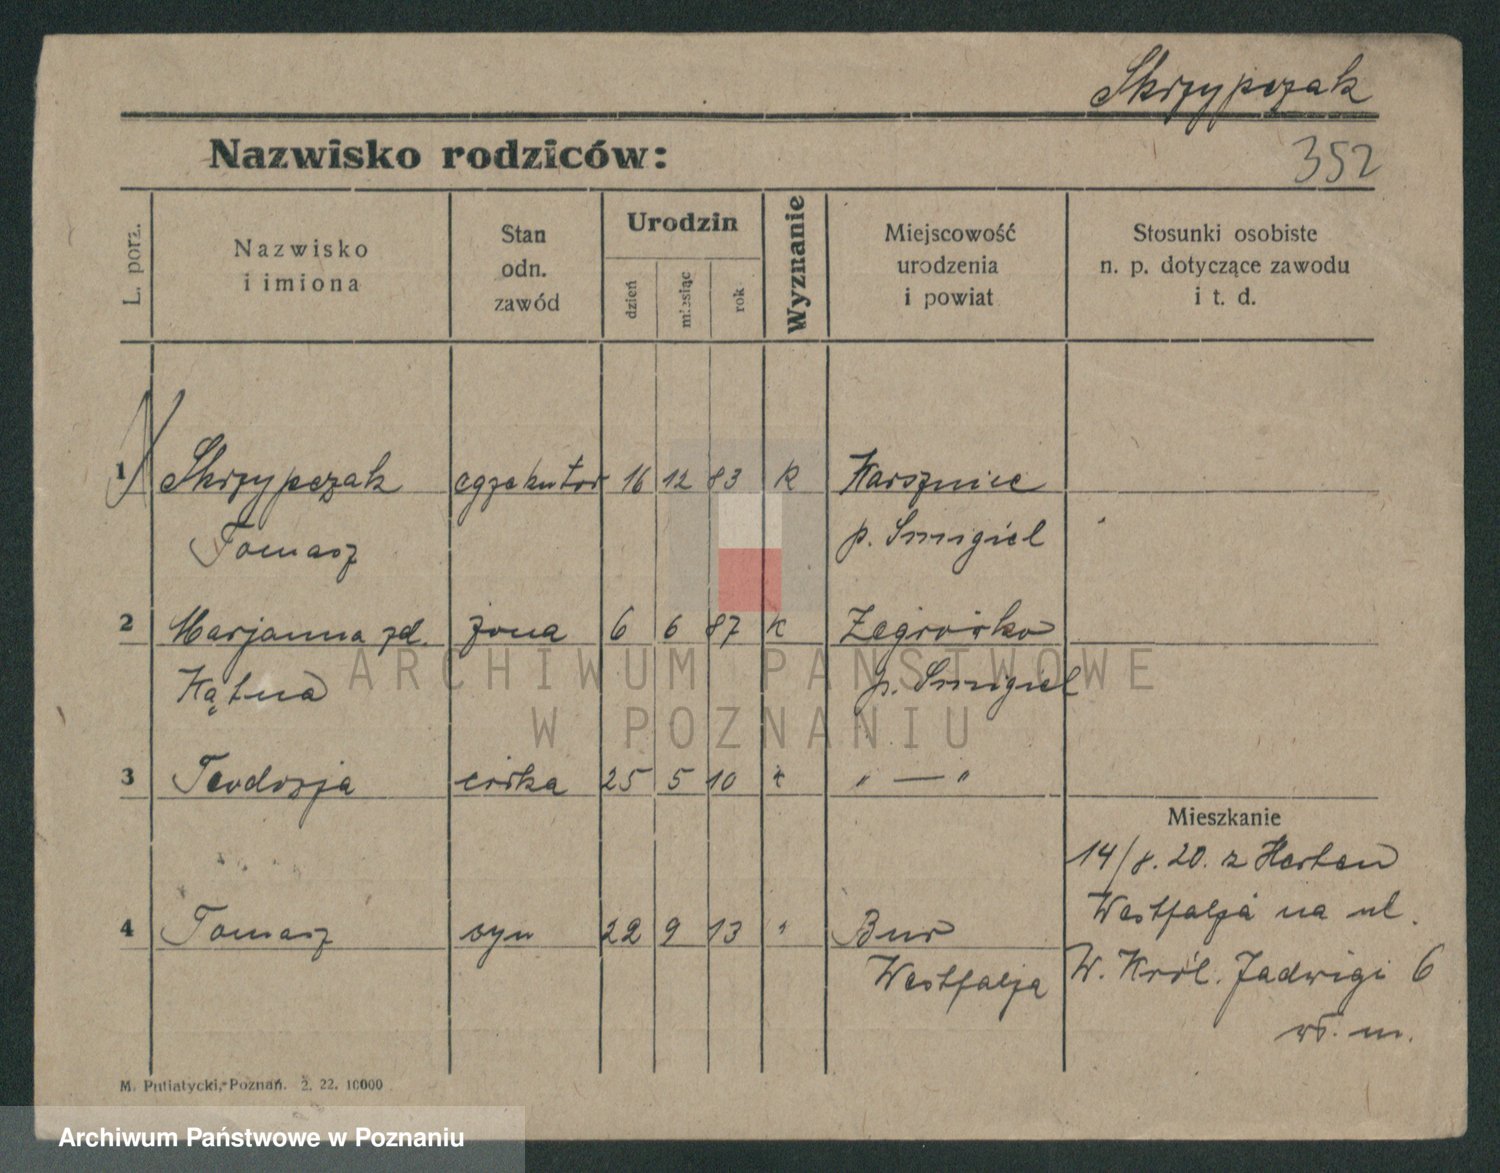 Skrzypczak
352
Nazwisko rodziców:
L. porz.
Nazwisko
i imiona
Stan
odn.
zawód
Urodzin
dzień
miesiąc
rok
Wyznanie
Miejscowość
urodzenia
i powiat
Stosunki osobiste
n. p. dotyczące zawodu
i t. d.
1 Skrzypczak egzekutor 16 12 83 k Karsznice
Tomasz p. Smigiel
2 Marjanna zd. żona 6 6 87 k Zegrówko
Kątna p. Smigiel
3 Teodozja córka 25 5 10 k " — "
Mieszkanie
14/8.20. z Herten
Westfalja na ul.
4 Tomasz syn 22 9 13 " Buer
Westfalja
W. Król. Jadwigi 6
wł. m.
M. Putiatycki, Poznań. 2. 22. 10000
ARCHIWUM PAŃSTWOWE
W POZNANIU
Archiwum Państwowe w Poznaniu